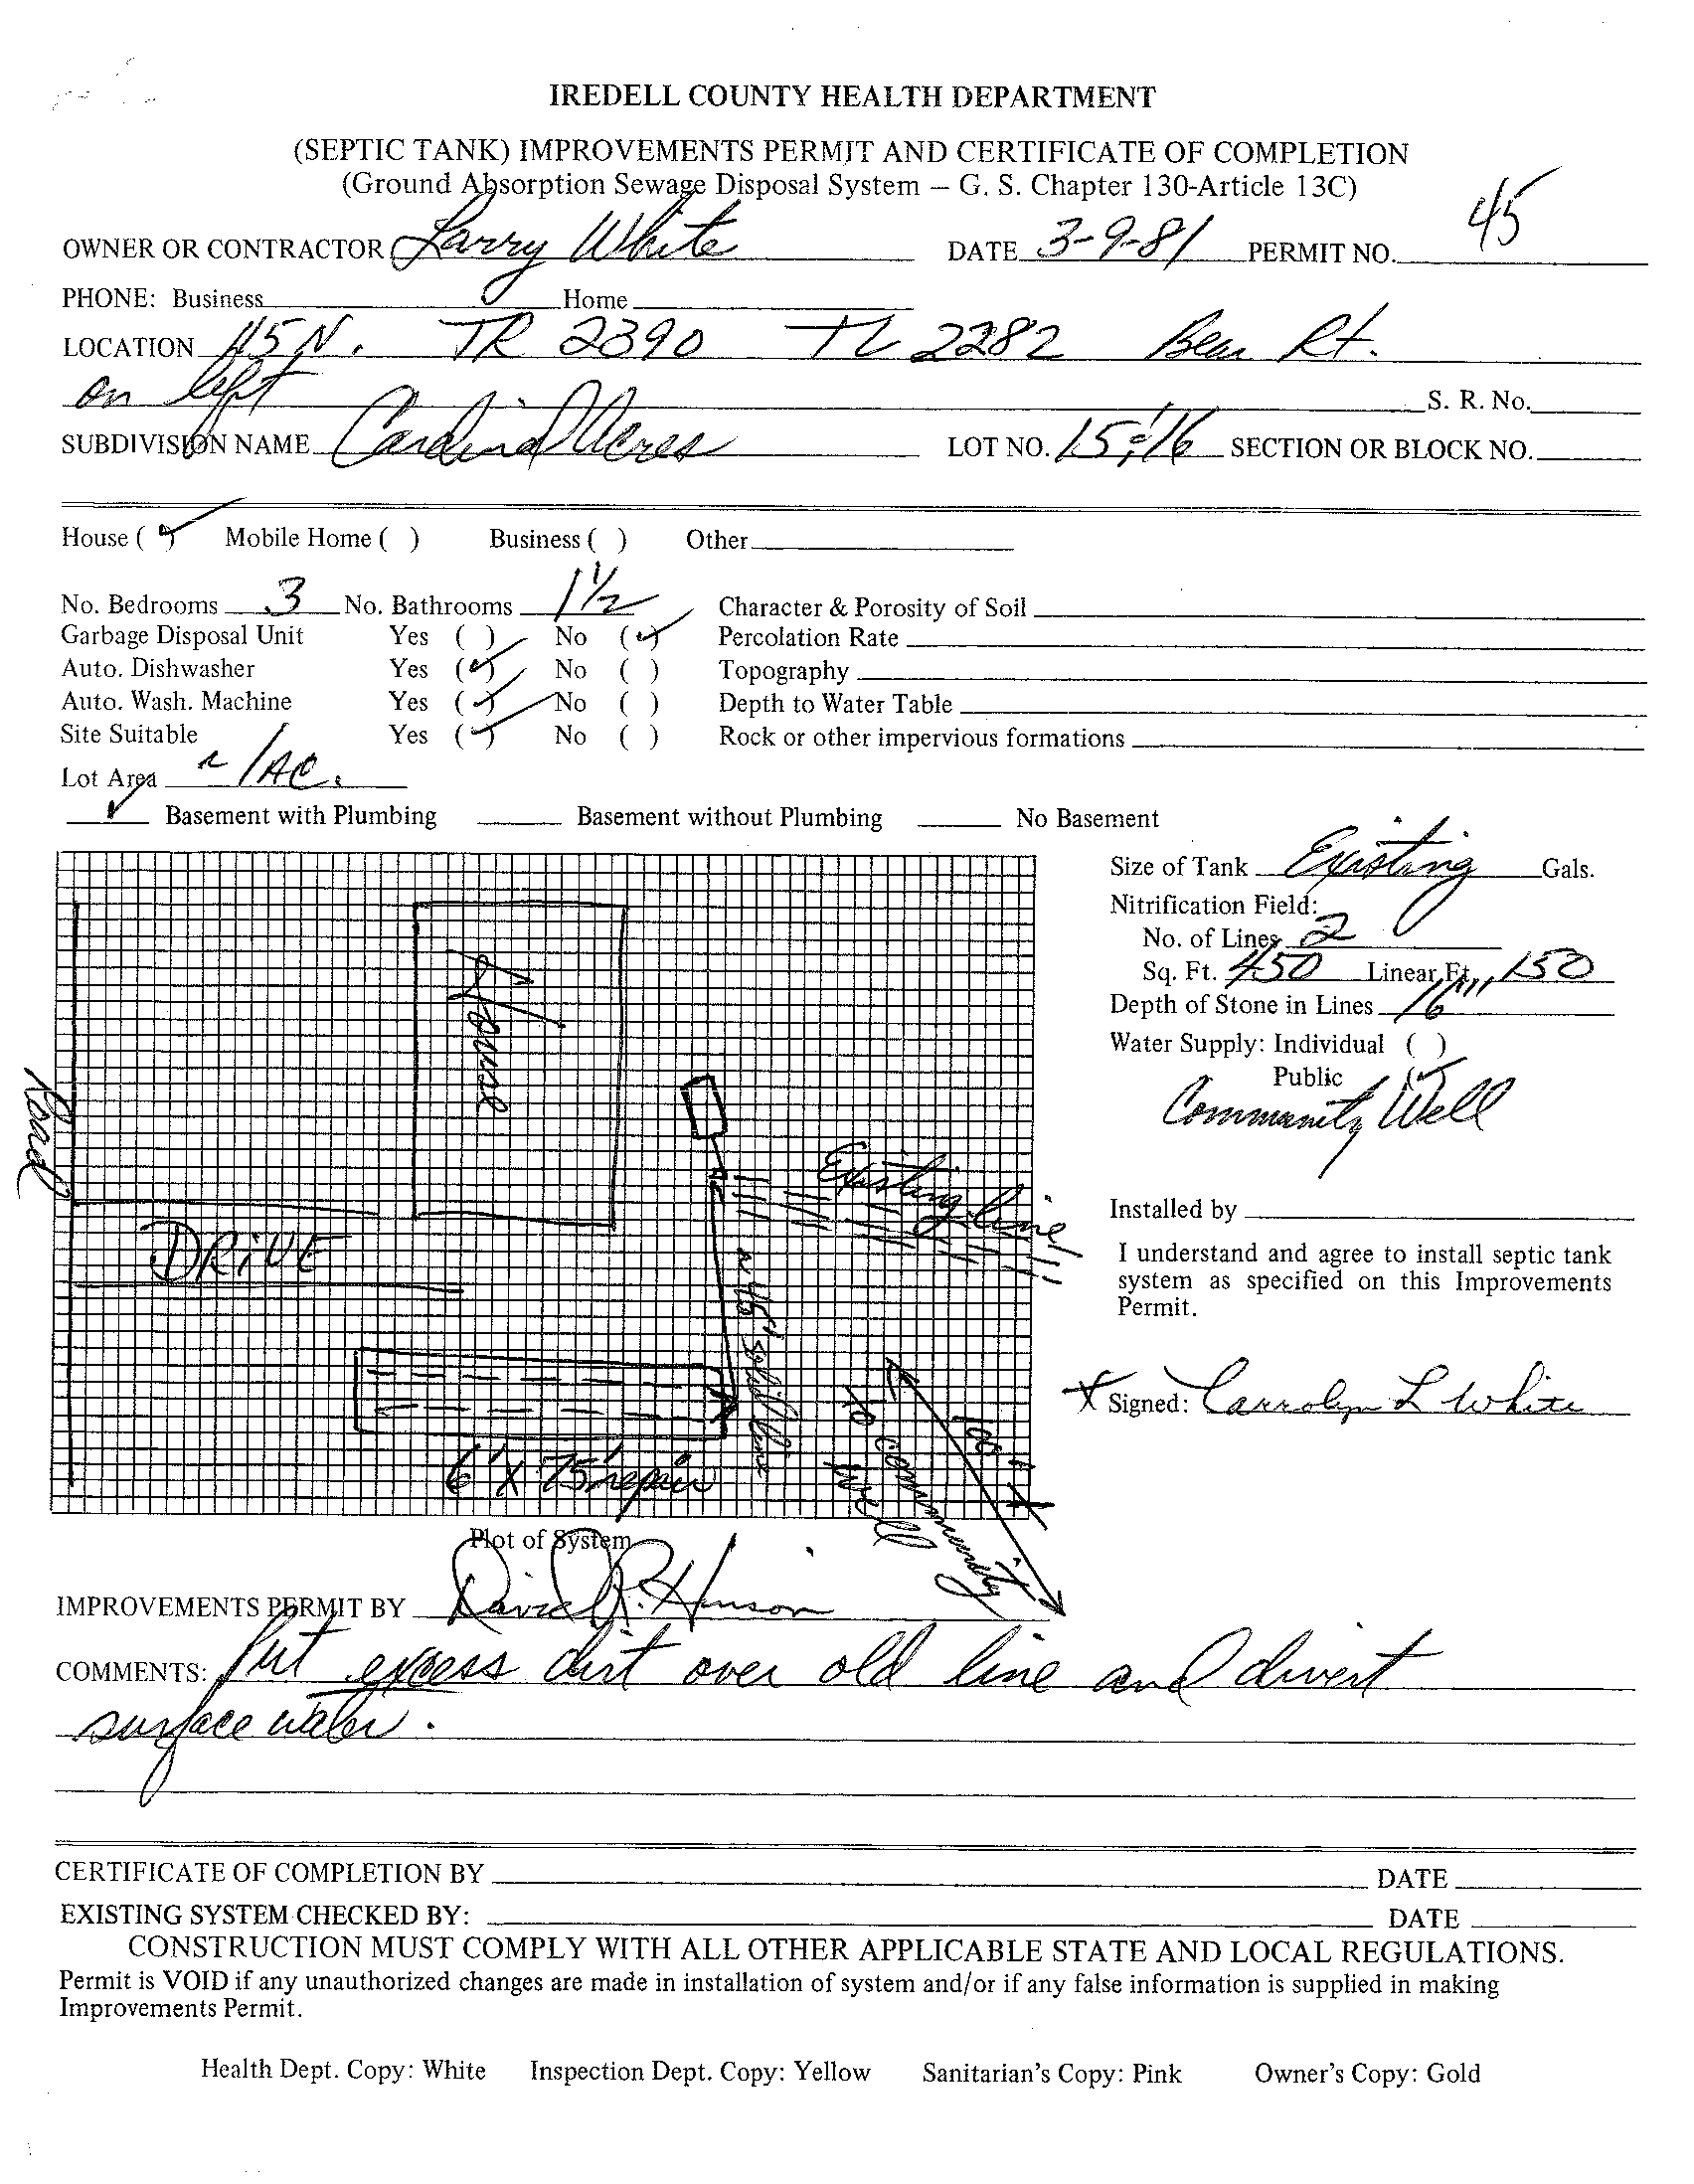 IREDELL COUNTY HEALTH DEPARTMENT
(SEPTIC TANK) IMPROVEMENTS PERMIT AND CERTIFICATE OF COMPLETION
(Ground Absorption Sewage Disposal System – G. S. Chapter 130-Article 13C)
OWNER OR CONTRACTOR Larry White DATE 3-9-81 PERMIT NO. 45
PHONE: Business Home
LOCATION 115 N. TR 2390 TL 2282 Bear Rt.
on left S. R. No.
SUBDIVISION NAME Cardinal Acres LOT NO. 15 & 16 SECTION OR BLOCK NO.
House (✓) Mobile Home ( ) Business ( ) Other
No. Bedrooms 3 No. Bathrooms 1 1/2 Character & Porosity of Soil
Garbage Disposal Unit Yes ( ) No (✓) Percolation Rate
Auto. Dishwasher Yes (✓) No ( ) Topography
Auto. Wash. Machine Yes (✓) No ( ) Depth to Water Table
Site Suitable Yes (✓) No ( ) Rock or other impervious formations
Lot Area ~ 1 AC.
✓ Basement with Plumbing Basement without Plumbing No Basement
Size of Tank Existing Gals.
Nitrification Field:
No. of Lines 2
Sq. Ft. 450 Linear Ft. 150
Depth of Stone in Lines 16"
Water Supply: Individual ( )
Public (✓)
Community Well
Installed by
I understand and agree to install septic tank
system as specified on this Improvements
Permit.
X Signed: Carrolyn L White
House
Road
DRIVE
Existing line
~ 45' solid line
6' X 75' repair
100 ft
to community
well
Plot of System
IMPROVEMENTS PERMIT BY David R. Hinson
COMMENTS: Put excess dirt over old line and divert
surface water.
CERTIFICATE OF COMPLETION BY DATE
EXISTING SYSTEM CHECKED BY: DATE
CONSTRUCTION MUST COMPLY WITH ALL OTHER APPLICABLE STATE AND LOCAL REGULATIONS.
Permit is VOID if any unauthorized changes are made in installation of system and/or if any false information is supplied in making
Improvements Permit.
Health Dept. Copy: White Inspection Dept. Copy: Yellow Sanitarian's Copy: Pink Owner's Copy: Gold